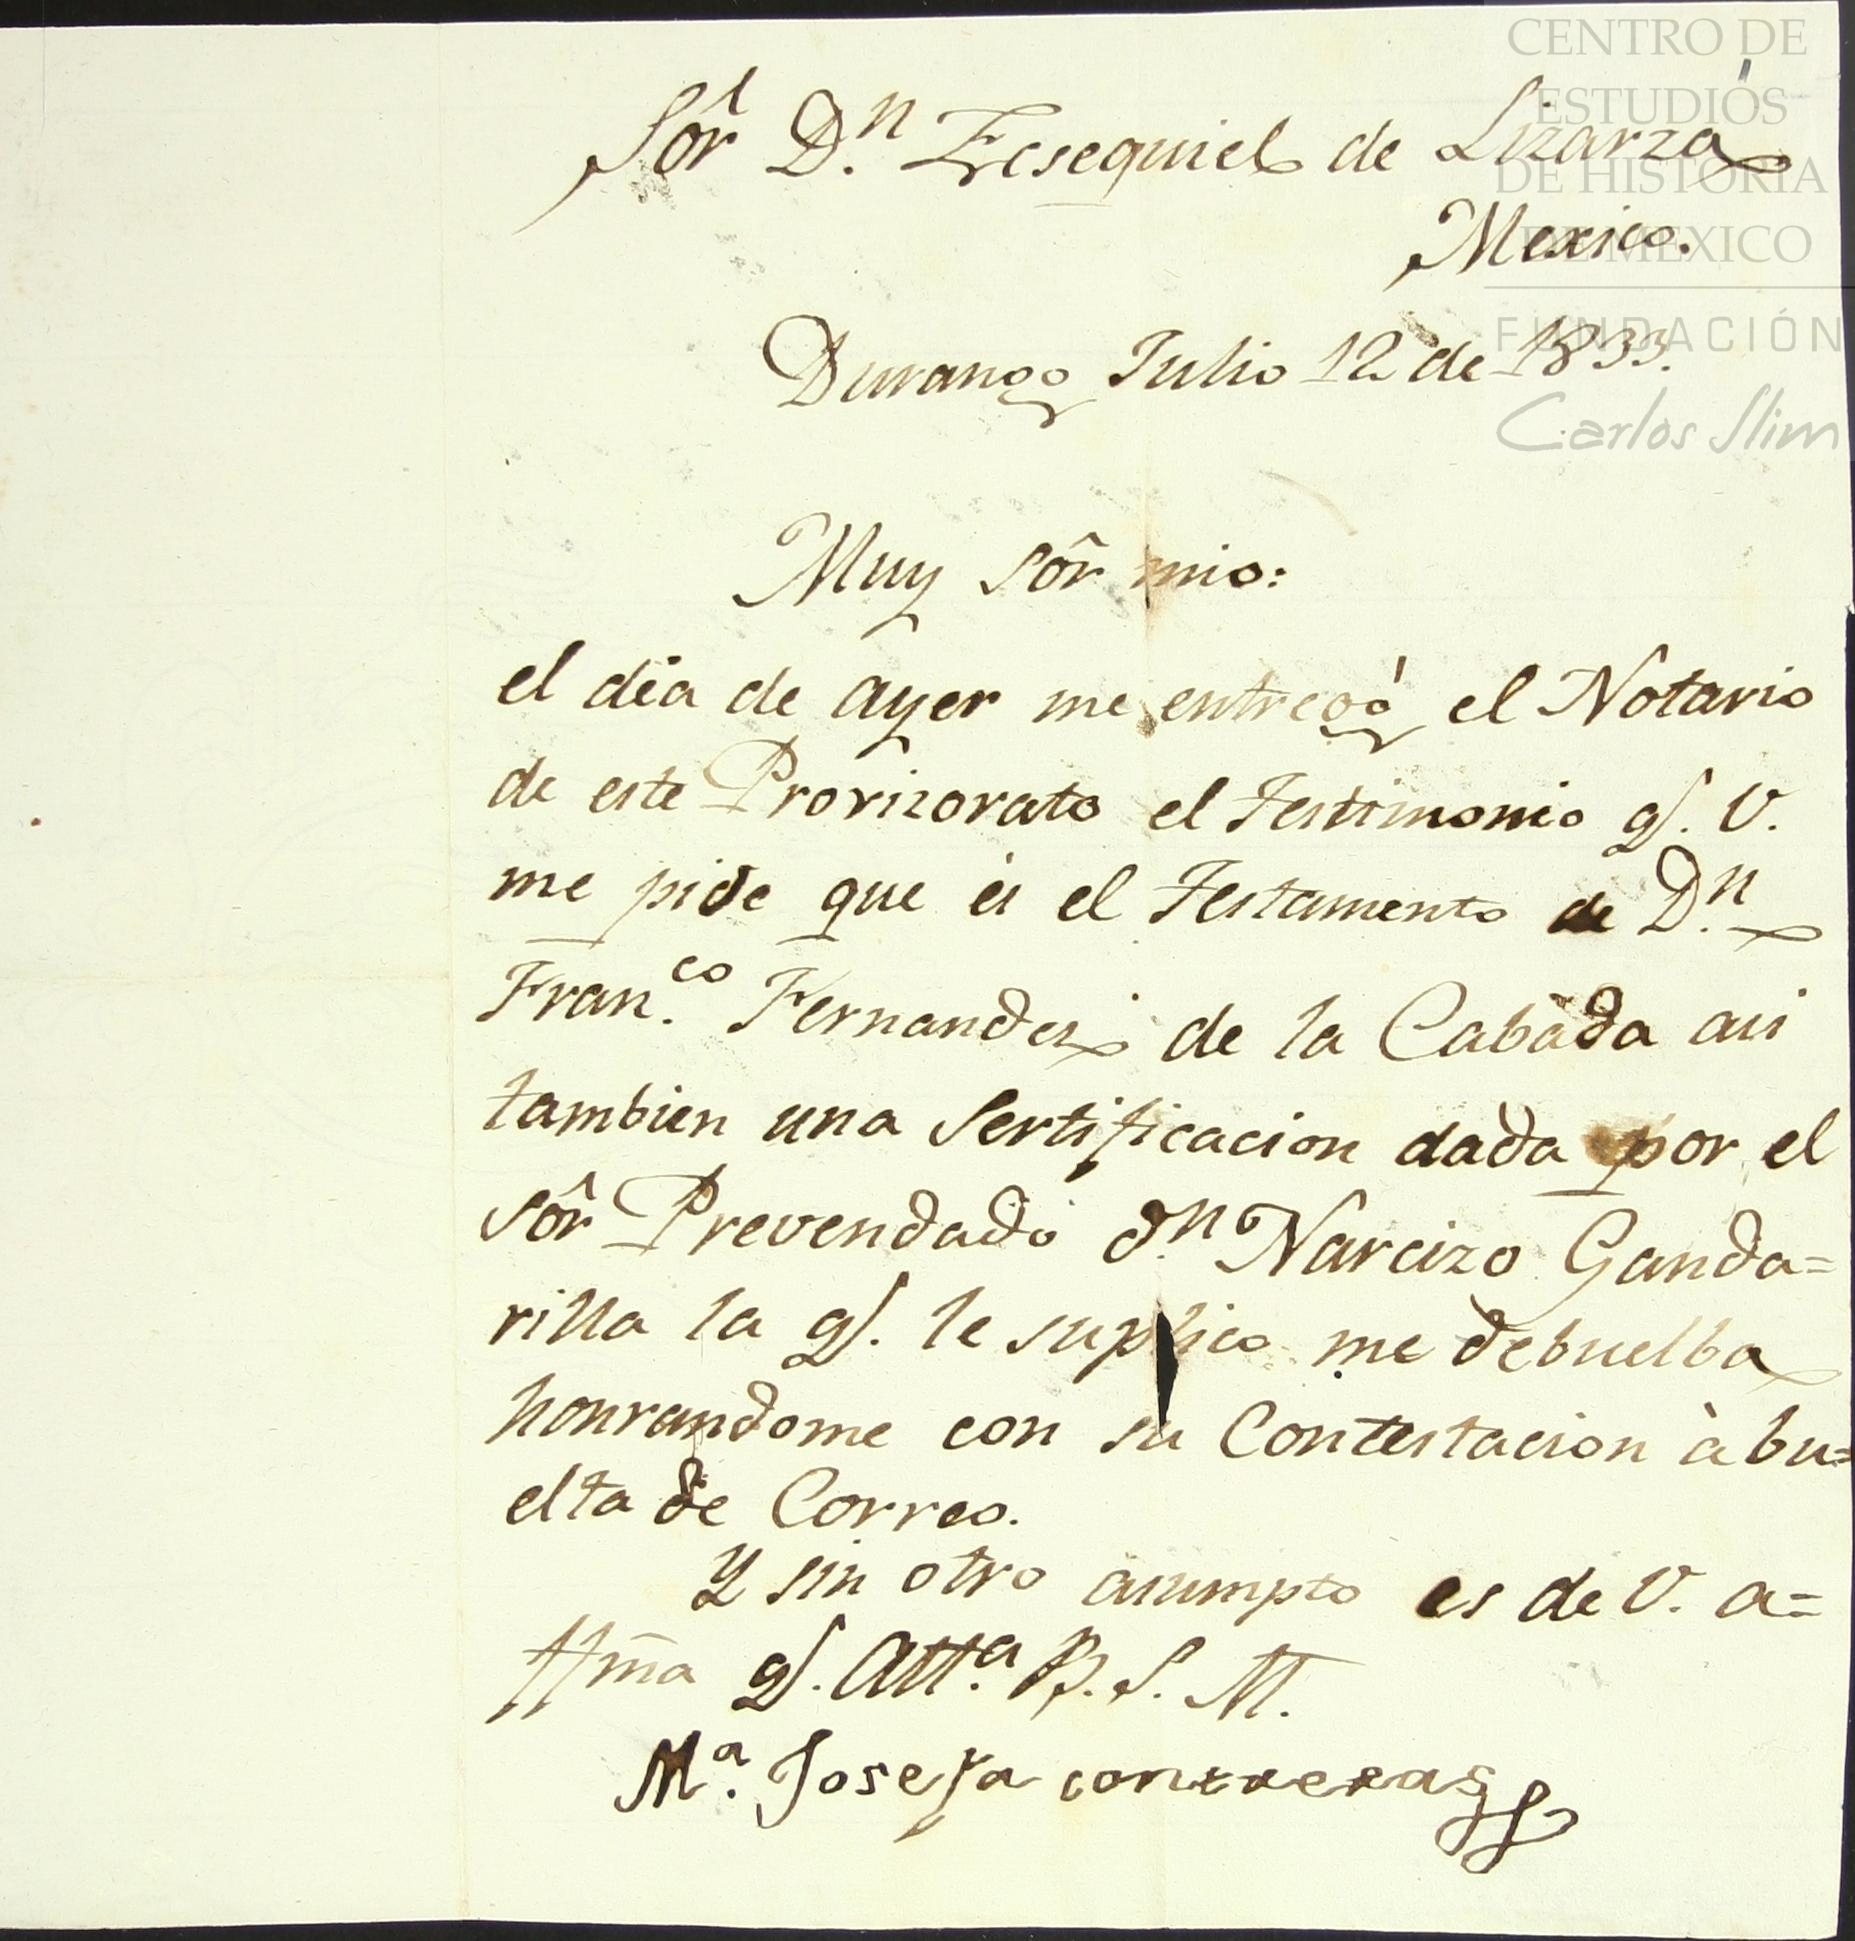 CENTRO DE
ESTUDIOS
DE HISTORIA
DE MEXICO
FUNDACIÓN
Carlos Slim
Sôr Dⁿ. Ecsequiel de Lizarza
Mexico.
Durango Julio 12 de 1833.
Muy Sôr mio:
el dia de ayer me entregó el Notario
de este Provizorato el Testimonio q. V.
me pide que és el Testamento de Dⁿ.
Fran.ᶜᵒ Fernandes de la Cabada asi
tambien una Sertificacion dada por el
Sôr Prevendado dⁿ. Narcizo Ganda=
rilla la q. le suplico me debuelba
honrandome con su Contestacion à bu=
elta de Correo.
Y sin otro asumpto es de V. a=
ffm̃a q. Att.ᵃ B. S. M.
M.ᵃ Josefa contreras